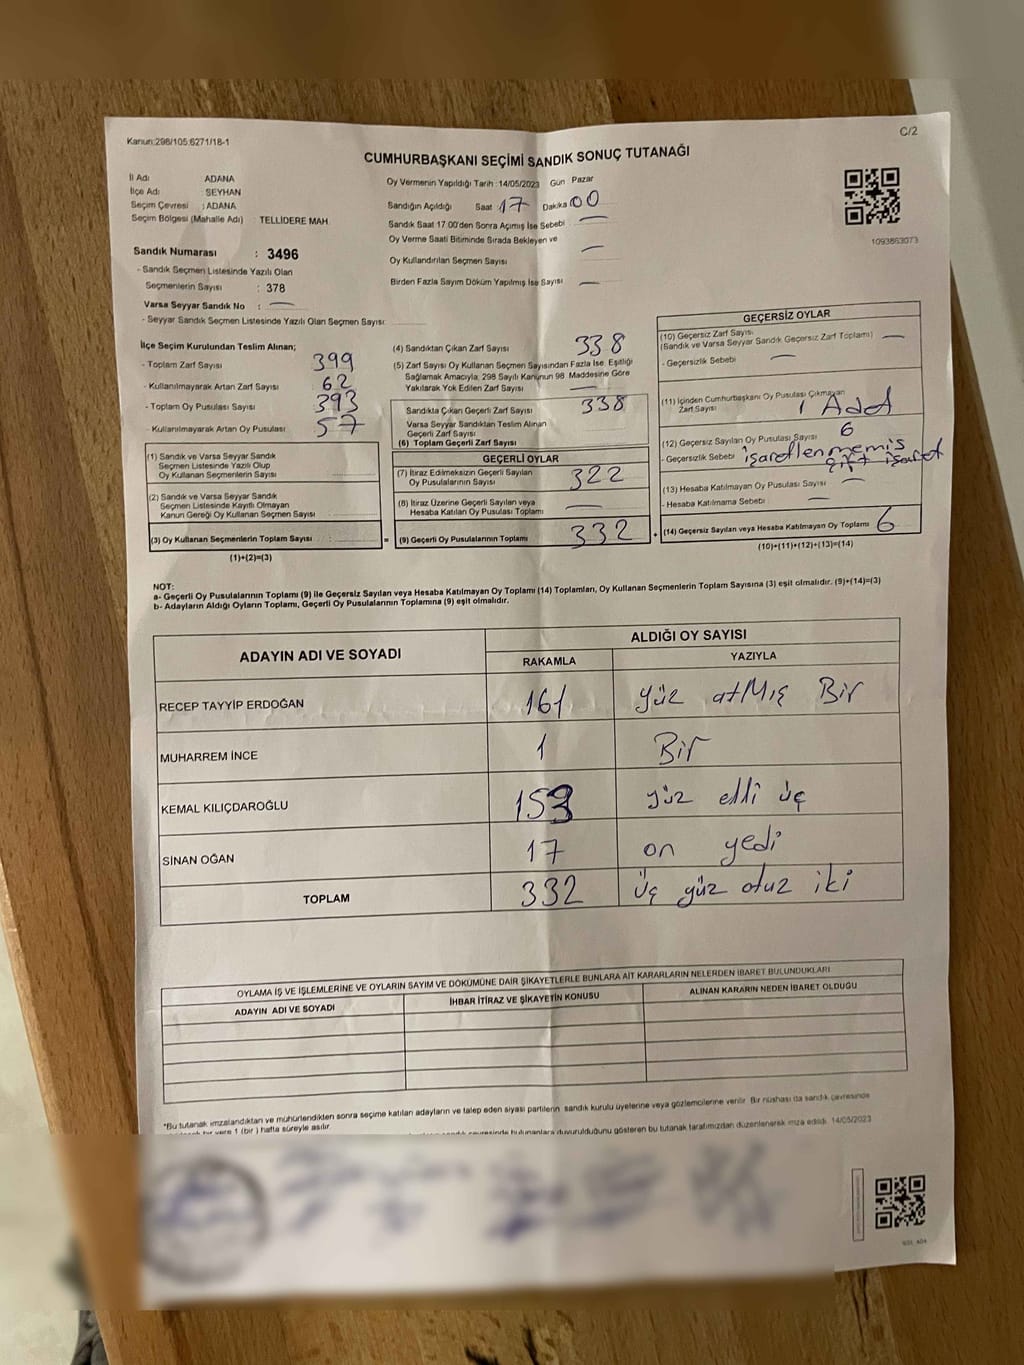 Kanun:298/105:6271/18-1
C/2
CUMHURBAŞKANI SEÇİMİ SANDIK SONUÇ TUTANAĞI
İl Adı ADANA
İlçe Adı SEYHAN
Seçim Çevresi : ADANA
Seçim Bölgesi (Mahalle Adı) : TELLİDERE MAH.
Sandık Numarası : 3496
- Sandık Seçmen Listesinde Yazılı Olan
Seçmenlerin Sayısı : 378
Varsa Seyyar Sandık No : —
- Seyyar Sandık Seçmen Listesinde Yazılı Olan Seçmen Sayısı:
Oy Vermenin Yapıldığı Tarih : 14/05/2023 Gün : Pazar
Sandığın Açıldığı Saat 17 Dakika 00
Sandık Saat 17.00'den Sonra Açımış İse Sebebi —
Oy Verme Saati Bitiminde Sırada Bekleyen ve
Oy Kullandırılan Seçmen Sayısı —
Birden Fazla Sayım Döküm Yapılmış İse Sayısı —
1093863073
İlçe Seçim Kurulundan Teslim Alınan;
- Toplam Zarf Sayısı 399
- Kullanılmayarak Artan Zarf Sayısı 62
- Toplam Oy Pusulası Sayısı 393
- Kullanılmayarak Artan Oy Pusulası 57
(1) Sandık ve Varsa Seyyar Sandık
Seçmen Listesinde Yazılı Olup
Oy Kullanan Seçmenlerin Sayısı
(2) Sandık ve Varsa Seyyar Sandık
Seçmen Listesinde Kayıtlı Olmayan
Kanun Gereği Oy Kullanan Seçmen Sayısı
(3) Oy Kullanan Seçmenlerin Toplam Sayısı : =
(1)+(2)=(3)
(4) Sandıktan Çıkan Zarf Sayısı 338
(5) Zarf Sayısı Oy Kullanan Seçmen Sayısından Fazla İse, Eşitliği
Sağlamak Amacıyla, 298 Sayılı Kanunun 98. Maddesine Göre
Yakılarak Yok Edilen Zarf Sayısı —
Sandıkta Çıkan Geçerli Zarf Sayısı 338
Varsa Seyyar Sandıktan Teslim Alınan
Geçerli Zarf Sayısı
(6) Toplam Geçerli Zarf Sayısı
GEÇERLİ OYLAR
(7) İtiraz Edilmeksizin Geçerli Sayılan
Oy Pusulalarının Sayısı 322
(8) İtiraz Üzerine Geçerli Sayılan veya
Hesaba Katılan Oy Pusulası Toplamı —
(9) Geçerli Oy Pusulalarının Toplamı 332 +
GEÇERSİZ OYLAR
(10) Geçersiz Zarf Sayısı
(Sandık ve Varsa Seyyar Sandık Geçersiz Zarf Toplamı) —
- Geçersizlik Sebebi —
(11) İçinden Cumhurbaşkanı Oy Pusulası Çıkmayan
Zarf Sayısı 1 Adet
(12) Geçersiz Sayılan Oy Pusulası Sayısı 6
- Geçersizlik Sebebi işaretlenmemiş
çift işaret
(13) Hesaba Katılmayan Oy Pusulası Sayısı —
- Hesaba Katılmama Sebebi —
(14) Geçersiz Sayılan veya Hesaba Katılmayan Oy Toplamı 6
(10)+(11)+(12)+(13)=(14)
NOT:
a- Geçerli Oy Pusulalarının Toplamı (9) ile Geçersiz Sayılan veya Hesaba Katılmayan Oy Toplamı (14) Toplamları, Oy Kullanan Seçmenlerin Toplam Sayısına (3) eşit olmalıdır. (9)+(14)=(3)
b- Adayların Aldığı Oyların Toplamı, Geçerli Oy Pusulalarının Toplamına (9) eşit olmalıdır.
ADAYIN ADI VE SOYADI ALDIĞI OY SAYISI
RAKAMLA YAZIYLA
RECEP TAYYİP ERDOĞAN 161 yüz atmış Bir
MUHARREM İNCE 1 Bir
KEMAL KILIÇDAROĞLU 153 yüz elli üç
SİNAN OĞAN 17 on yedi
TOPLAM 332 üç yüz otuz iki
OYLAMA İŞ VE İŞLEMLERİNE VE OYLARIN SAYIM VE DÖKÜMÜNE DAİR ŞİKAYETLERLE BUNLARA AİT KARARLARIN NELERDEN İBARET BULUNDUKLARI
ADAYIN ADI VE SOYADI İHBAR İTİRAZ VE ŞİKAYETİN KONUSU ALINAN KARARIN NEDEN İBARET OLDUĞU
*Bu tutanak imzalandıktan ve mühürlendikten sonra seçime katılan adayların ve talep eden siyasi partilerin sandık kurulu üyelerine veya gözlemcilerine verilir. Bir nüshası da sandık çevresinde
bir yere 1 (bir) hafta süreyle asılır.
bulunanlara duyurulduğunu gösteren bu tutanak tarafımızdan düzenlenerek imza edildi. 14/05/2023